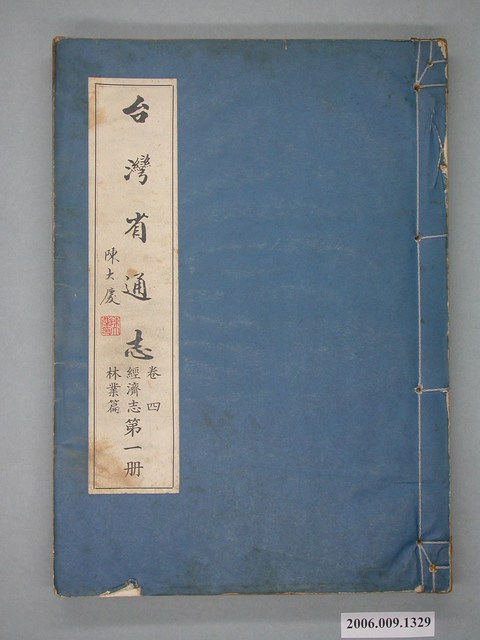 台灣省通志
卷四
經濟志
林業篇
第一册
陳大慶
2006.009.1329